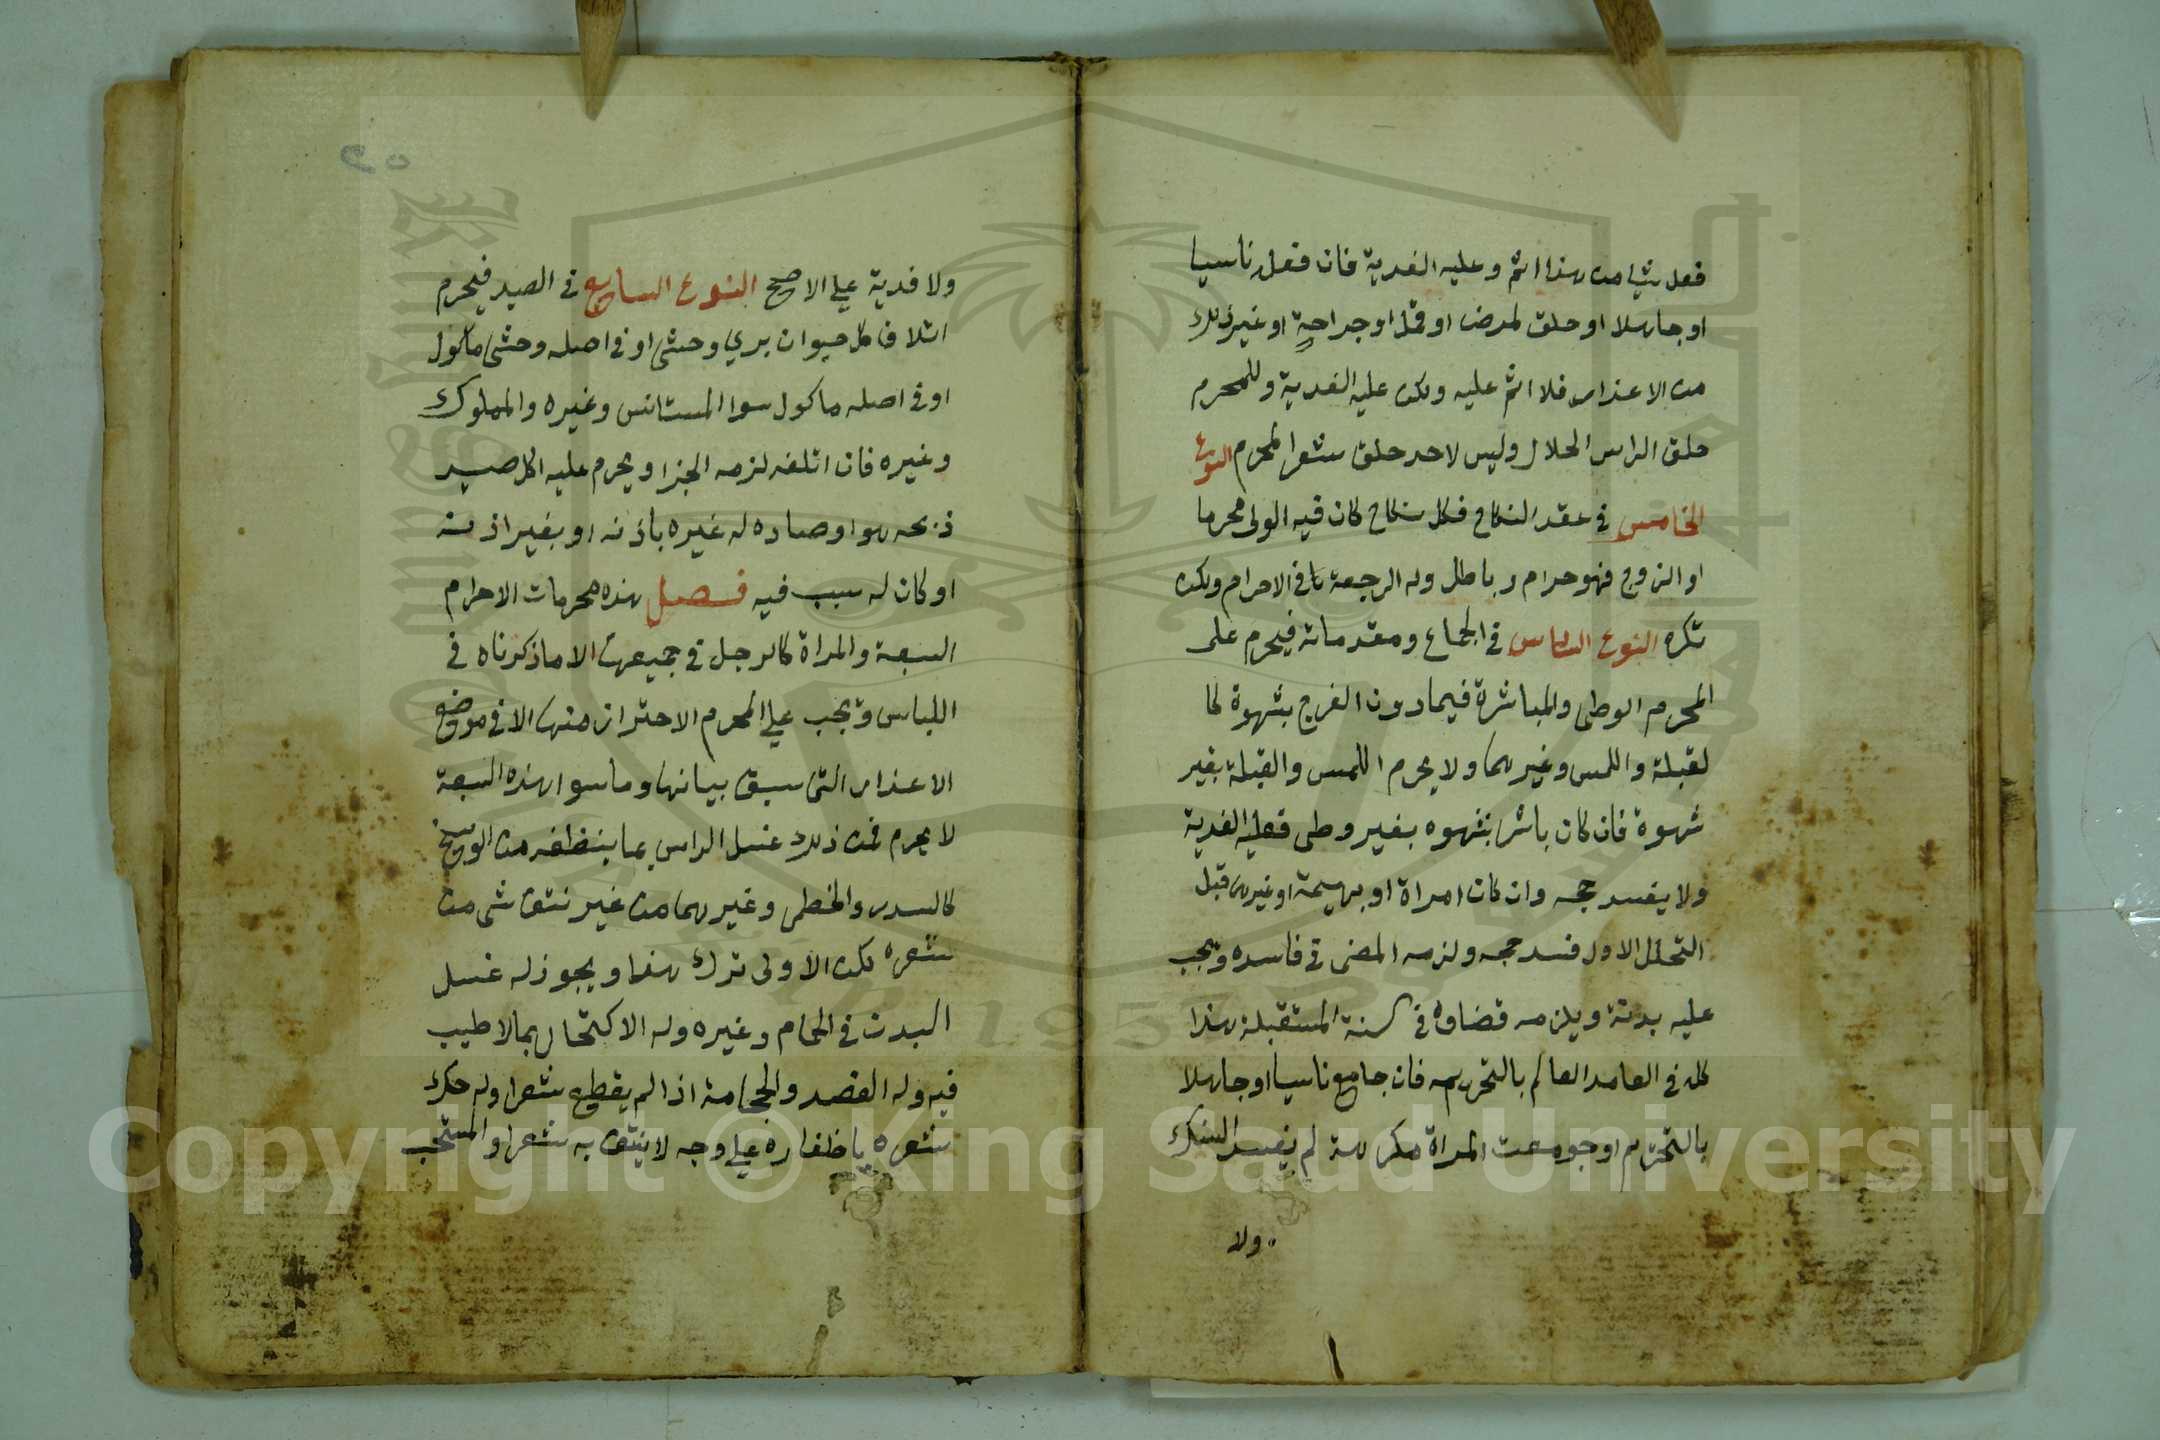 فعل شيا من هذا اثم وعليه الفدية فان فعله ناسيا
او جاهلا او حلق لمرض او قمل او جراحة او غير ذلك
من الاعذار فلا اثم عليه ولكن عليه الفدية وللمحرم
حلق الراس الحلال وليس لاحد حلق شعر المحرم النوع
الخامس في عقد النكاح فكل نكاح كان فيه الولي محرما
او الزوج فهو حرام وباطل وله الرجعة في الاحرام ولكن
تكره النوع السادس في الجماع ومقدماته فيحرم على
المحرم الوطي والمباشرة فيما دون الفرج بشهوة كا
لقبلة واللمس وغيرهما ولا يحرم اللمس والقبلة بغير
شهوة فان كان باشر بشهوه بغير وطى فعليه الفدية
ولا يفسد حجه وان كان امراة او بهيمة او غيرها قبل
التحلل الاول فسد حجه ولزمه المضي في فاسده وتجب
عليه بدنة ويلزمه قضاوه في السنة المستقبلة هذا
كله في العامد العالم بالتحريم فان جامع ناسيا او جاهلا
بالتحريم او جومعت المراة مكرهة لم يفسد النسك
ولا
ولا فدية علي الاصح النوع السابع في الصيد فيحرم
اتلاف كل حيوان بري وحشي او في اصله وحشي ماكول
او في اصله ماكول سوا المستانس وغيره والمملوك
وغيره فان اتلفه لزمه الجزا ويحرم عليه اكل صيد
ذبحه هو او صاده له غيره باذنه او بغير اذنه
او كان له سبب فيه فصل هذه محرمات الاحرام
السبعة والمراة كالرجل في جميعها الا ما ذكرناه في
اللباس وتجب علي المحرم الاحتراز منها الا في موضع
الاعذار التي سبق بيانها وما سوا هذه السبعة
لا يحرم فمن ذلك غسل الراس بما ينظفه من الوسخ
كالسدر والخطمي وغيرهما من غير نتف شي من
شعره لكن الاولى ترك هذا ويجوز له غسل
البدن في الحمام وغيره وله الاكتحال بما لا طيب
فيه وله الفصد والحجامة اذا لم يقطع شعرا وله حك
شعره باظفاره علي وجه لا ينتف به شعرا والمستحب
Copyright © King Saud University
1957